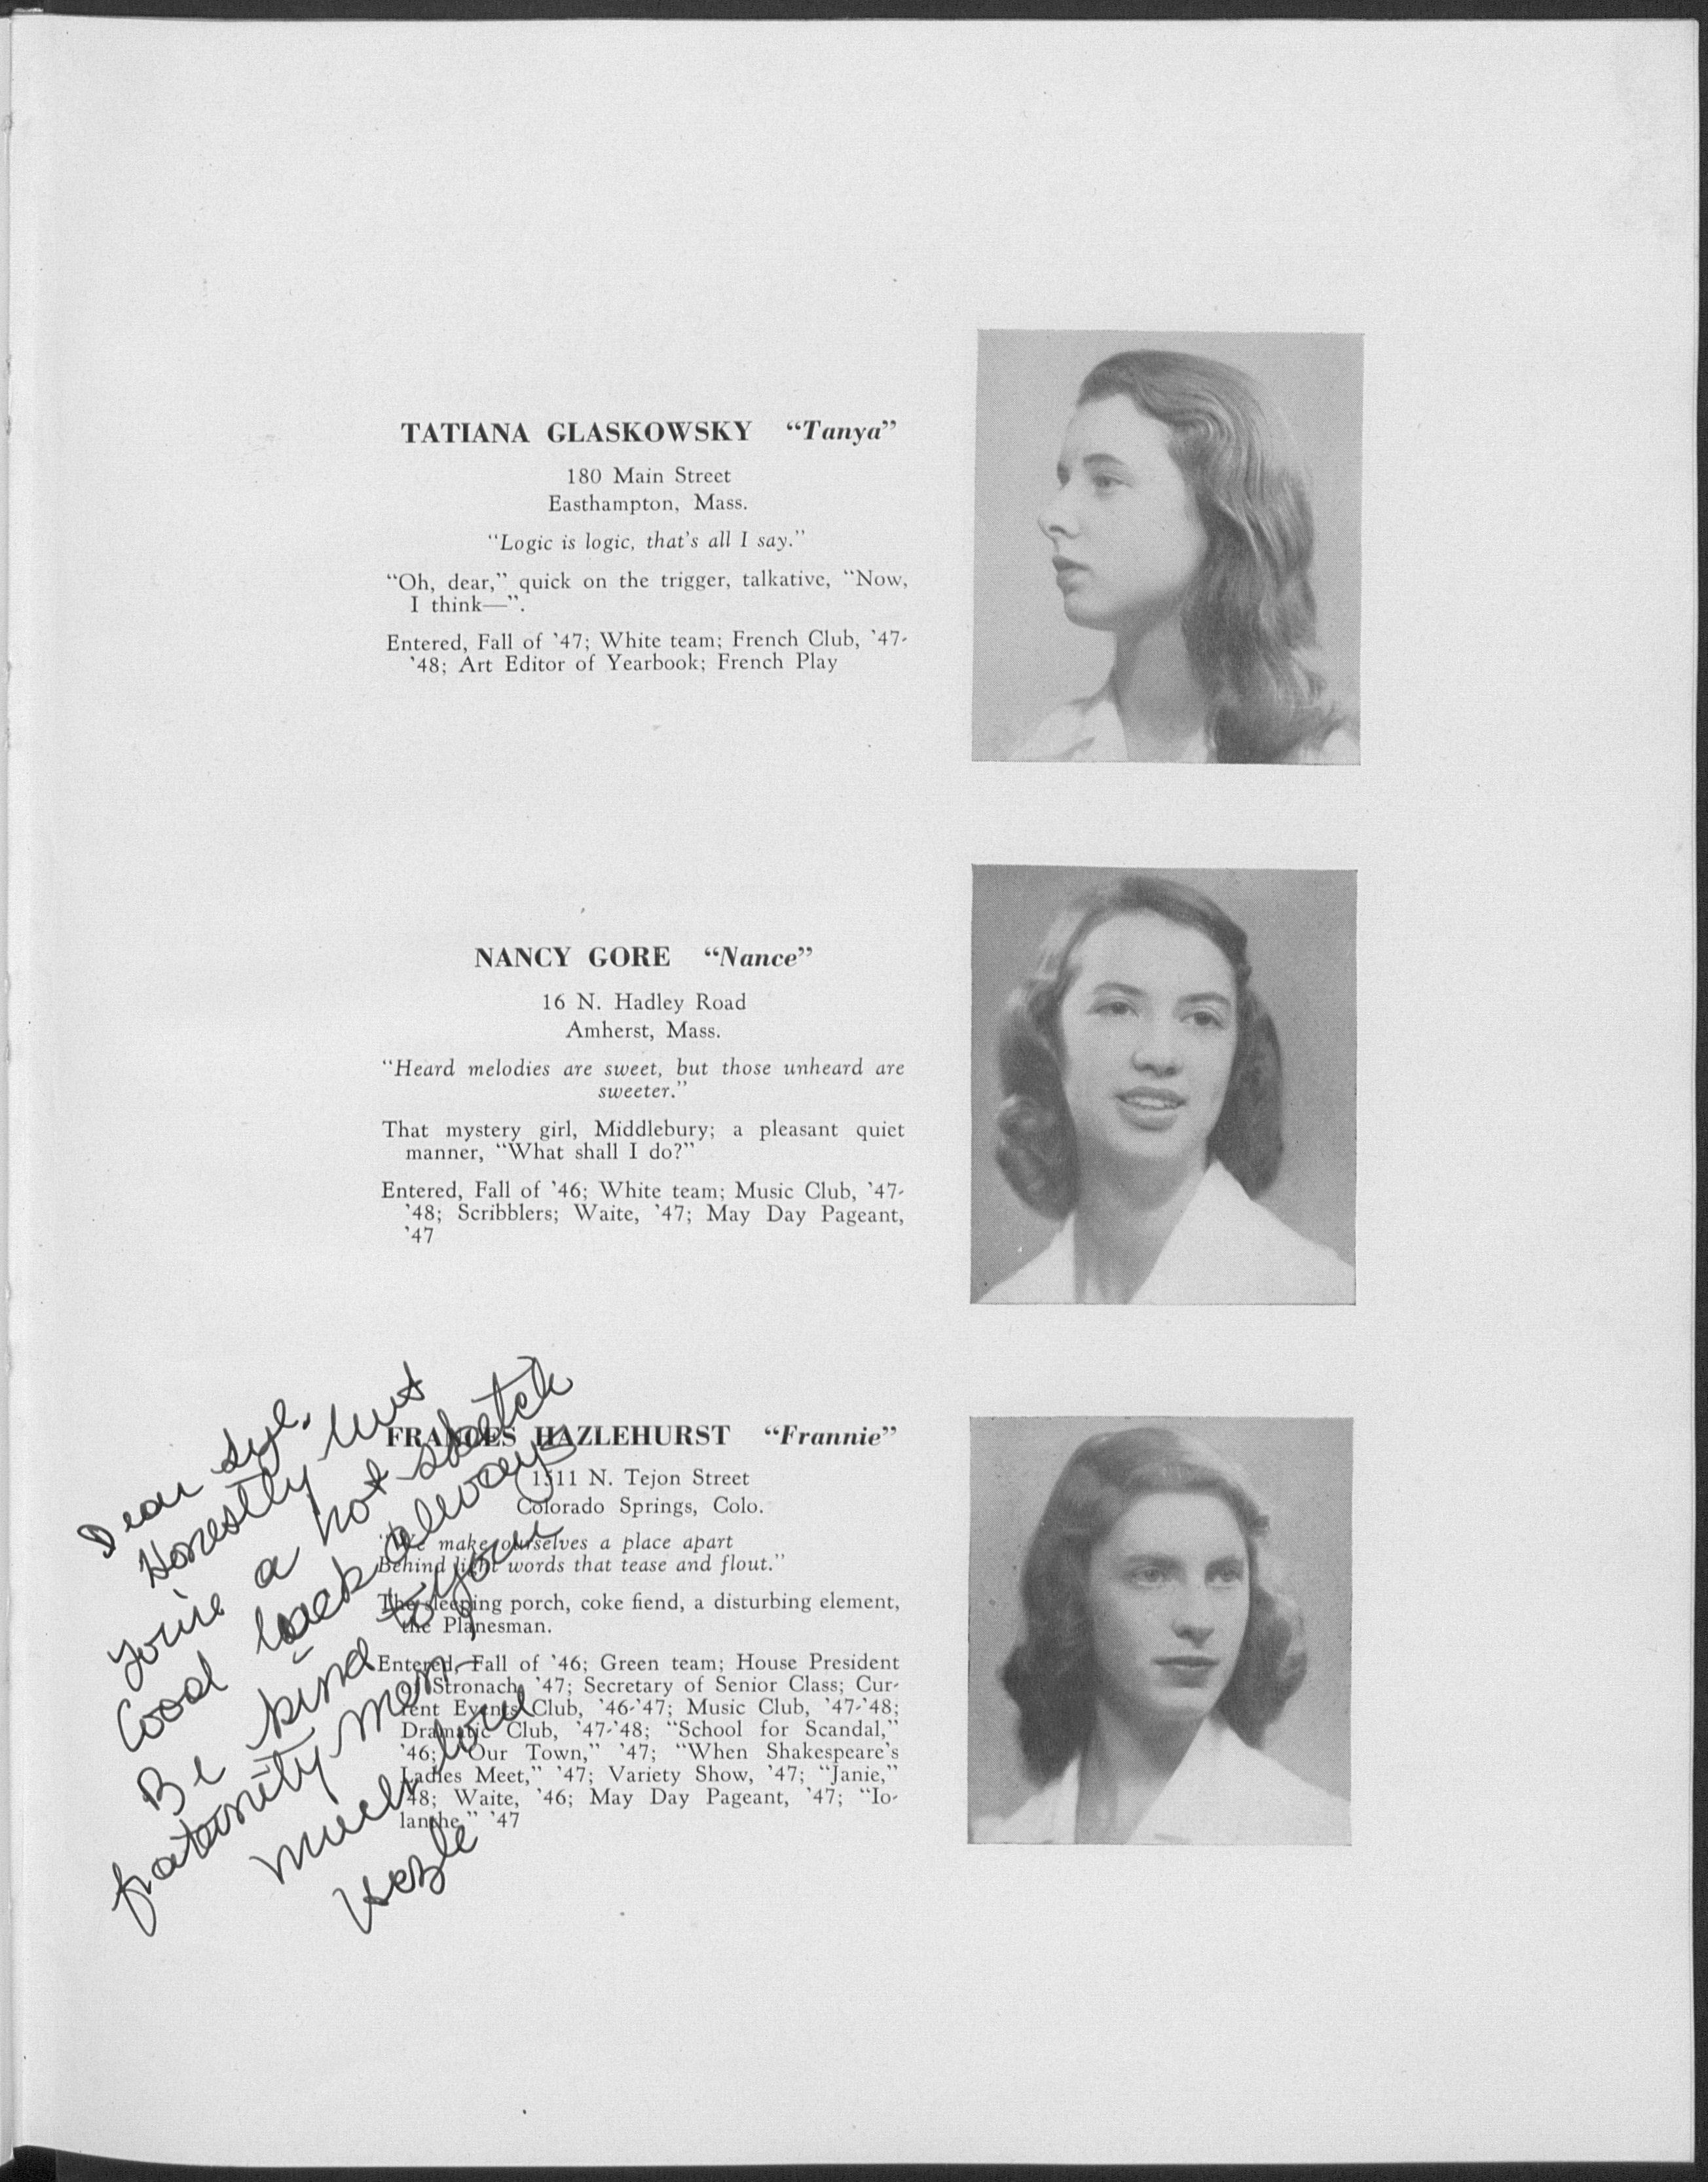 TATIANA GLASKOWSKY “Tanya”
180 Main Street
Easthampton, Mass.
“Logic is logic, that's all I say.”
“Oh, dear,” quick on the trigger, talkative, “Now,
I think—”.
Entered, Fall of '47; White team; French Club, '47-
'48; Art Editor of Yearbook; French Play
NANCY GORE “Nance”
16 N. Hadley Road
Amherst, Mass.
“Heard melodies are sweet, but those unheard are
sweeter.”
That mystery girl, Middlebury; a pleasant quiet
manner, “What shall I do?”
Entered, Fall of '46; White team; Music Club, '47-
'48; Scribblers; Waite, '47; May Day Pageant,
'47
FRANCES HAZLEHURST “Frannie”
1511 N. Tejon Street
Colorado Springs, Colo.
“We make ourselves a place apart
Behind light words that tease and flout.”
The sleeping porch, coke fiend, a disturbing element,
the Planesman.
Entered, Fall of '46; Green team; House President
of Stronach, '47; Secretary of Senior Class; Cur-
rent Events Club, '46-'47; Music Club, '47-'48;
Dramatic Club, '47-'48; “School for Scandal,”
'46; “Our Town,” '47; “When Shakespeare's
Ladies Meet,” '47; Variety Show, '47; “Janie,”
'48; Waite, '46; May Day Pageant, '47; “Io-
lanthe,” '47
Dear
Honestly but
you're a hot sketch
Good luck always
Be kind to your
fraternity men-
Much love
Hazle